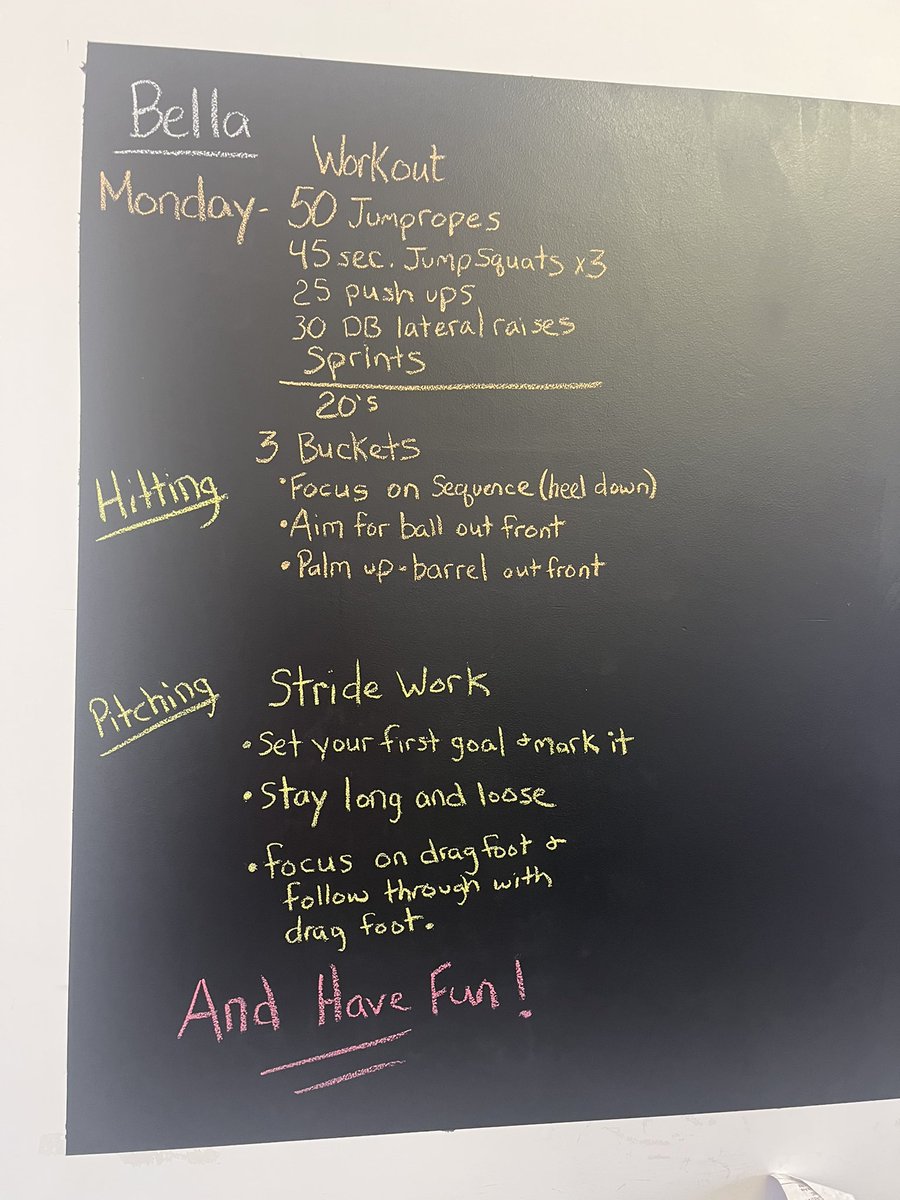 Bella
Workout
Monday- 50 Jumpropes
45 sec. Jump Squats x3
25 push ups
30 DB lateral raises
Sprints
20's
3 Buckets
Hitting
• Focus on Sequence (heel down)
• Aim for ball out front
• Palm up - barrel out front
Pitching
Stride Work
• Set your first goal + mark it
• Stay long and loose
• focus on drag foot +
follow through with
drag foot.
And Have Fun!